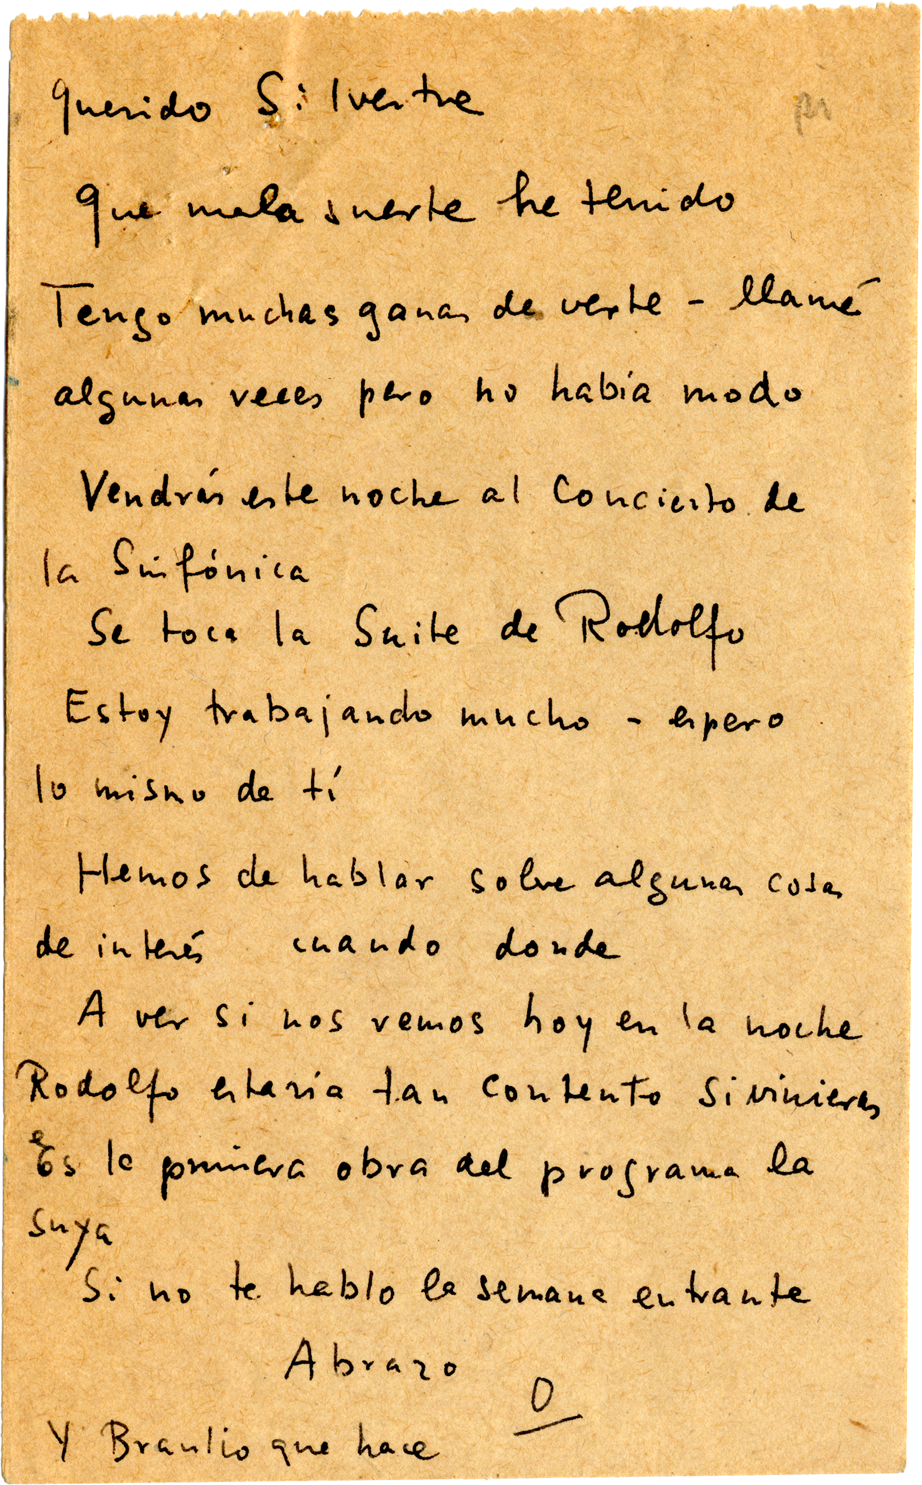 Querido Silvestre
que mala suerte he tenido
Tengo muchas ganas de verte - llamé
algunas veces pero no había modo
Vendrás este noche al Concierto de
la Sinfónica
Se toca la Suite de Rodolfo
Estoy trabajando mucho - espero
lo mismo de tí
Hemos de hablar sobre algunas cosas
de interés cuando donde
A ver si nos vemos hoy en la noche
Rodolfo estaría tan contento si vinieras
Es la primera obra del programa la
suya
Si no te hablo la semana entrante
Abrazo
O
Y Braulio que hace